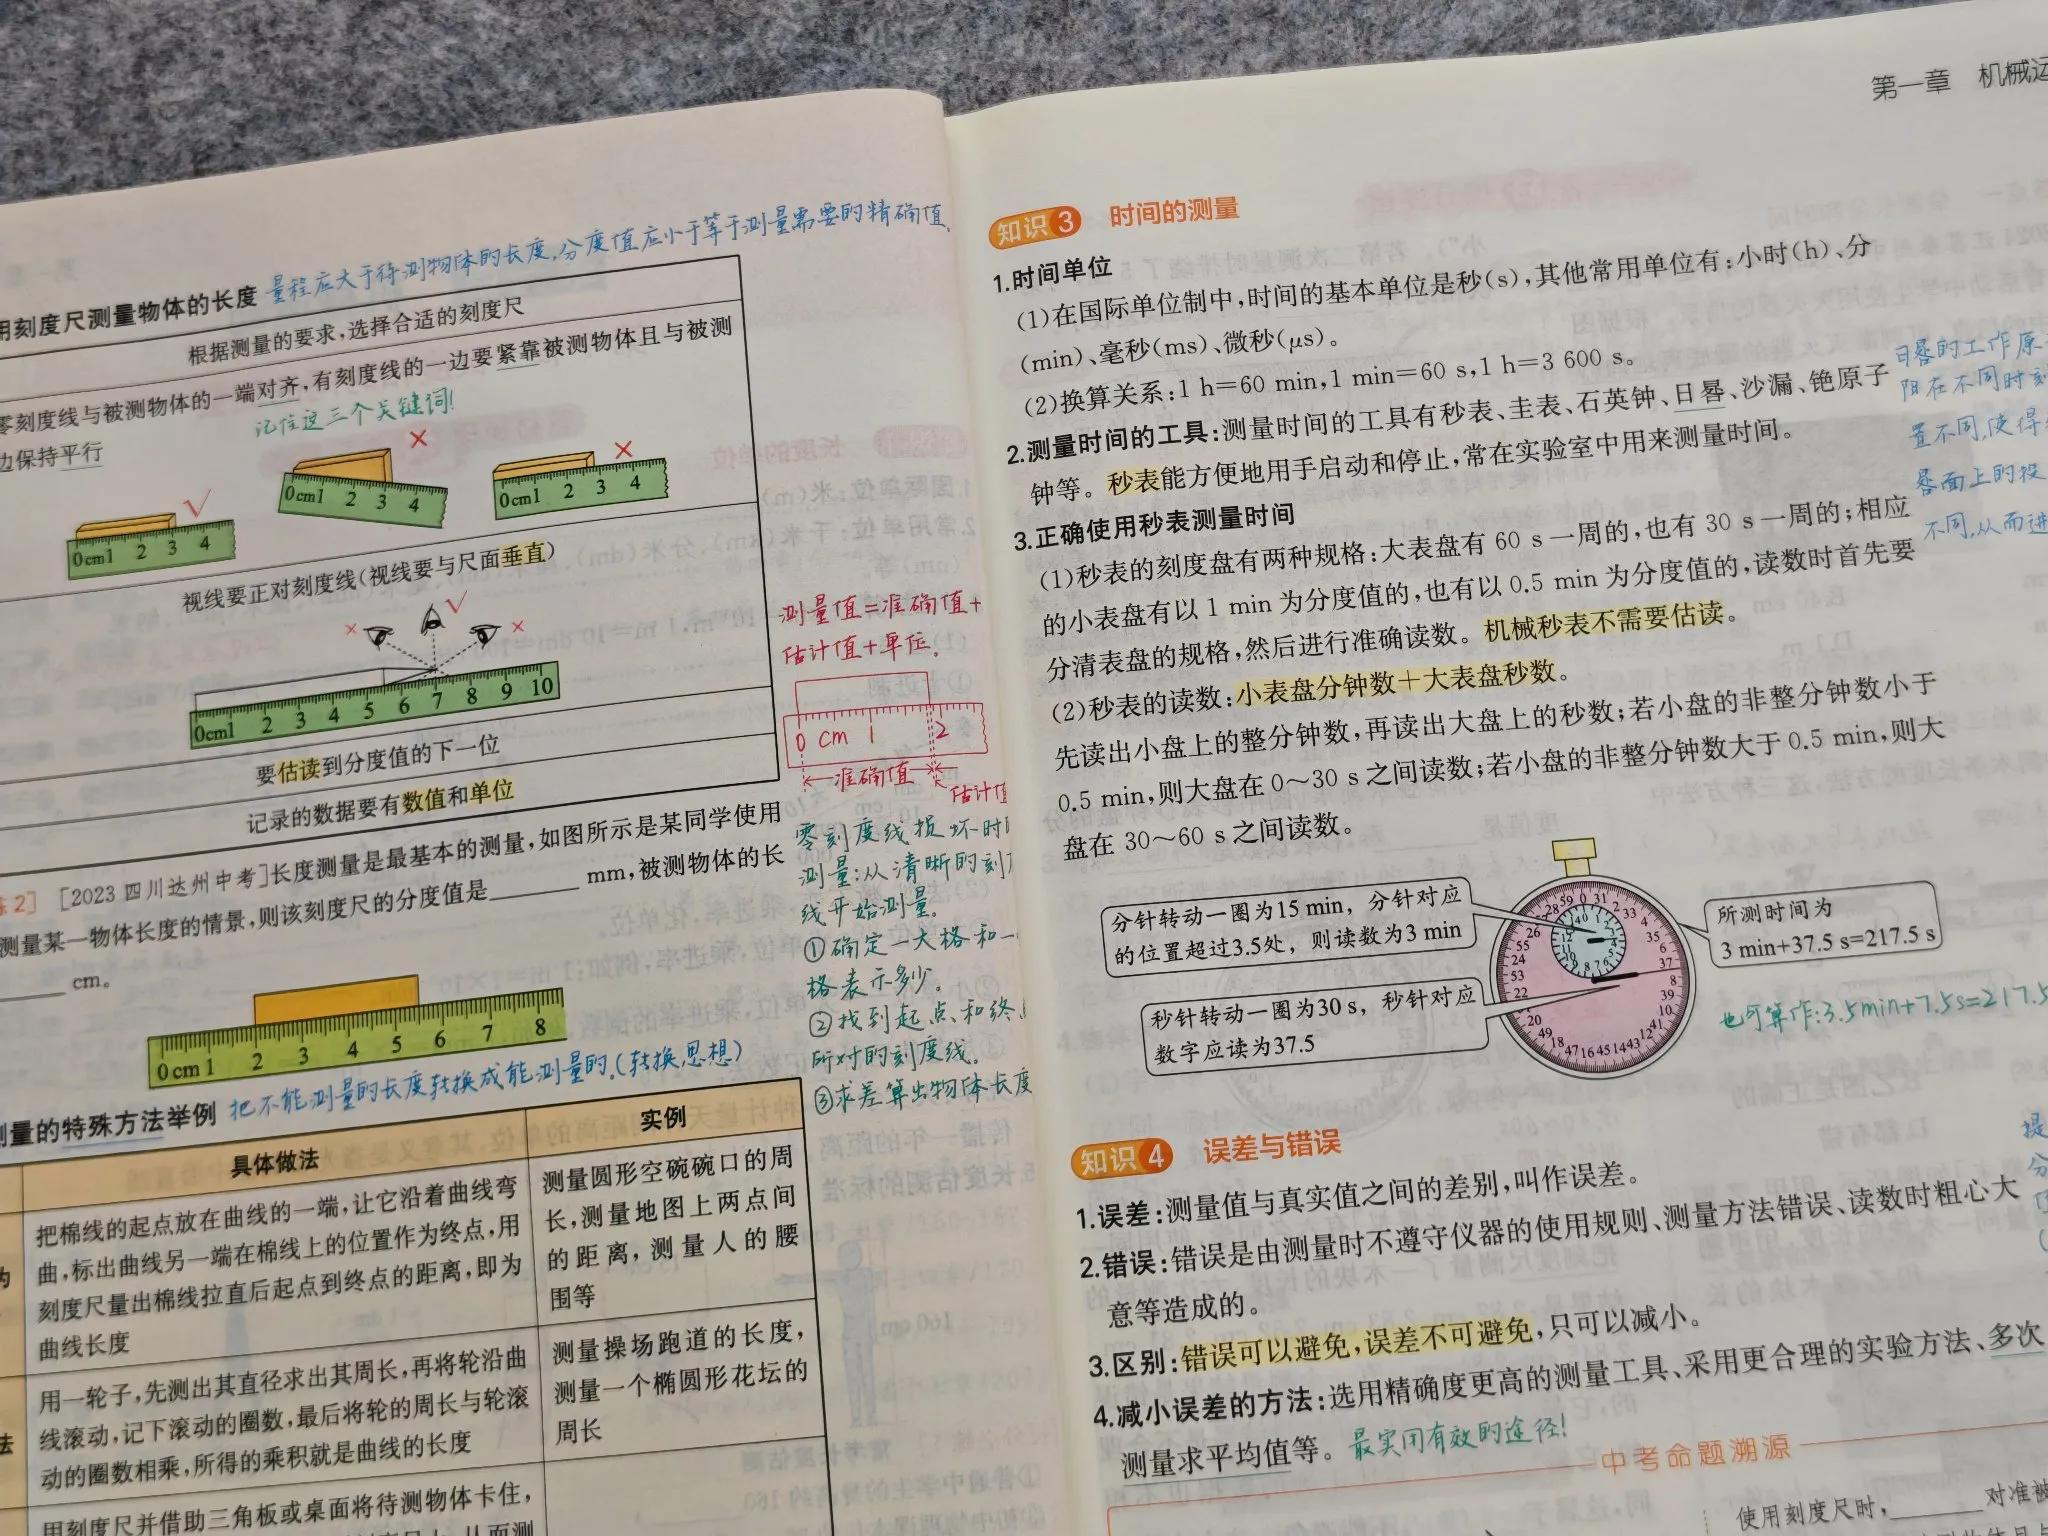 用刻度尺测量物体的长度 量程应大于待测物体的长度,分度值应小于等于测量需要的精确值.
根据测量的要求,选择合适的刻度尺
零刻度线与被测物体的一端对齐,有刻度线的一边要紧靠被测物体且与被测
边保持平行
记住这三个关键词!
0cm1 2 3 4
0cm1 2 3 4
0cm1 2 3 4
视线要正对刻度线(视线要与尺面垂直)
0cm1 2 3 4 5 6 7 8 9 10
要估读到分度值的下一位
记录的数据要有数值和单位
测量值=准确值+
估计值+单位.
0 cm 1 2
准确值
估计值
零刻度线损坏时
测量:从清晰的刻
线开始测量.
①确定一大格和一
格表示多少.
②找到起点和终
所对的刻度线.
③求差算出物体长度
练2] [2023四川达州中考]长度测量是最基本的测量,如图所示是某同学使用
测量某一物体长度的情景,则该刻度尺的分度值是________ mm,被测物体的长
______ cm。
0cm1 2 3 4 5 6 7 8
测量的特殊方法举例 把不能测量的长度转换成能测量的.(转换思想)
具体做法 实例
把棉线的起点放在曲线的一端,让它沿着曲线弯
曲,标出曲线另一端在棉线上的位置作为终点,用
刻度尺量出棉线拉直后起点到终点的距离,即为
曲线长度
测量圆形空碗碗口的周
长,测量地图上两点间
的距离,测量人的腰
围等
法
用一轮子,先测出其直径求出其周长,再将轮沿曲
线滚动,记下滚动的圈数,最后将轮的周长与轮滚
动的圈数相乘,所得的乘积就是曲线的长度
测量操场跑道的长度,
测量一个椭圆形花坛的
周长
用刻度尺并借助三角板或桌面将待测物体卡住,
第一章 机械运
知识3 时间的测量
1.时间单位
(1)在国际单位制中,时间的基本单位是秒(s),其他常用单位有:小时(h)、分
(min)、毫秒(ms)、微秒(μs)。
(2)换算关系:1 h=60 min,1 min=60 s,1 h=3 600 s。
2.测量时间的工具:测量时间的工具有秒表、圭表、石英钟、日晷、沙漏、铯原子
钟等。秒表能方便地用手启动和停止,常在实验室中用来测量时间。
日晷的工作原
阳在不同时刻
置不同,使得
晷面上的投
不同,从而进
3.正确使用秒表测量时间
(1)秒表的刻度盘有两种规格:大表盘有 60 s 一周的,也有 30 s 一周的;相应
的小表盘有以 1 min 为分度值的,也有以 0.5 min 为分度值的,读数时首先要
分清表盘的规格,然后进行准确读数。机械秒表不需要估读。
(2)秒表的读数:小表盘分钟数+大表盘秒数。
先读出小盘上的整分钟数,再读出大盘上的秒数;若小盘的非整分钟数小于
0.5 min,则大盘在 0~30 s 之间读数;若小盘的非整分钟数大于 0.5 min,则大
盘在 30~60 s 之间读数。
分针转动一圈为15 min，分针对应
的位置超过3.5处，则读数为3 min
秒针转动一圈为30 s，秒针对应
数字应读为37.5
所测时间为
3 min+37.5 s=217.5 s
也可算作:3.5min+7.5s=217.5
知识4 误差与错误
1.误差:测量值与真实值之间的差别,叫作误差。
2.错误:错误是由测量时不遵守仪器的使用规则、测量方法错误、读数时粗心大
意等造成的。
3.区别:错误可以避免,误差不可避免,只可以减小。
4.减小误差的方法:选用精确度更高的测量工具、采用更合理的实验方法、多次
测量求平均值等。最实用有效的途径!
中考命题溯源
使用刻度尺时,________对准被